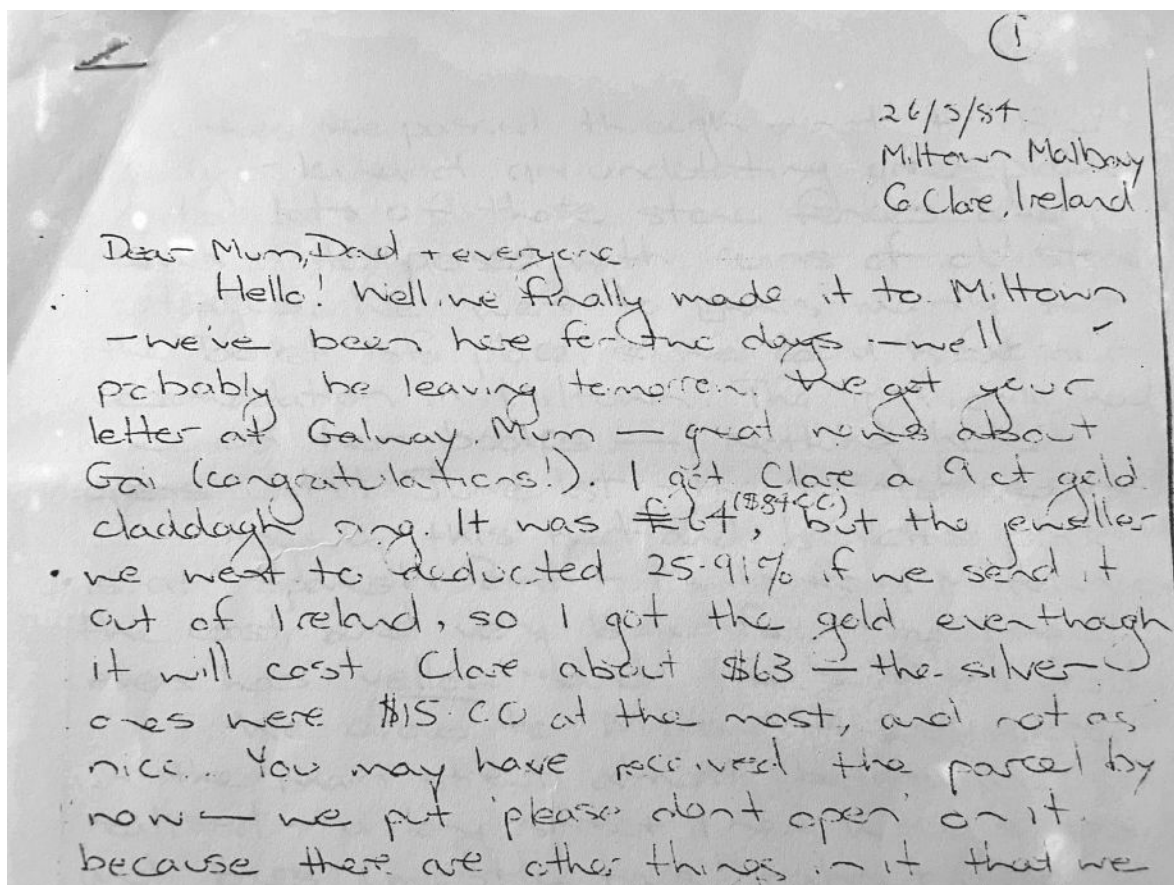 1
26/5/84
Miltown Malbay
Co Clare, Ireland
Dear Mum, Dad + everyone
Hello! Well we finally made it to Miltown
- we've been here for two days - we'll
probably be leaving tomorrow. We got your
letter at Galway Mum — great news about
Gai (congratulations!). I got Clare a 9ct gold
claddagh ring. It was £64 ($84.00), but the jeweller
we went to deducted 25.91% if we send it
out of Ireland, so I got the gold eventhough
it will cost Clare about $63 — the silver
ones were $15.00 at the most, and not as
nice. You may have received the parcel by
now — we put 'please dont open' on it
because there are other things in it that we